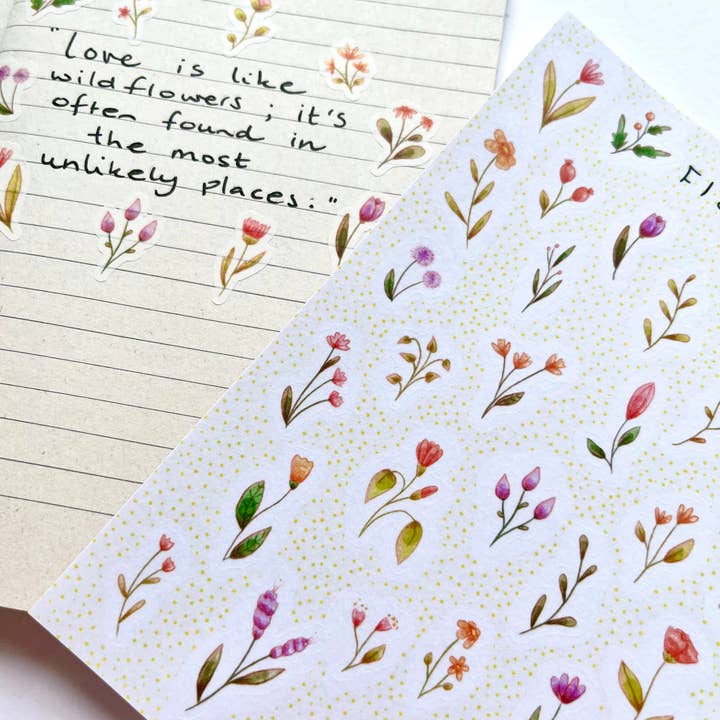 "Love is like
wildflowers ; it's
often found in
the most
unlikely places."